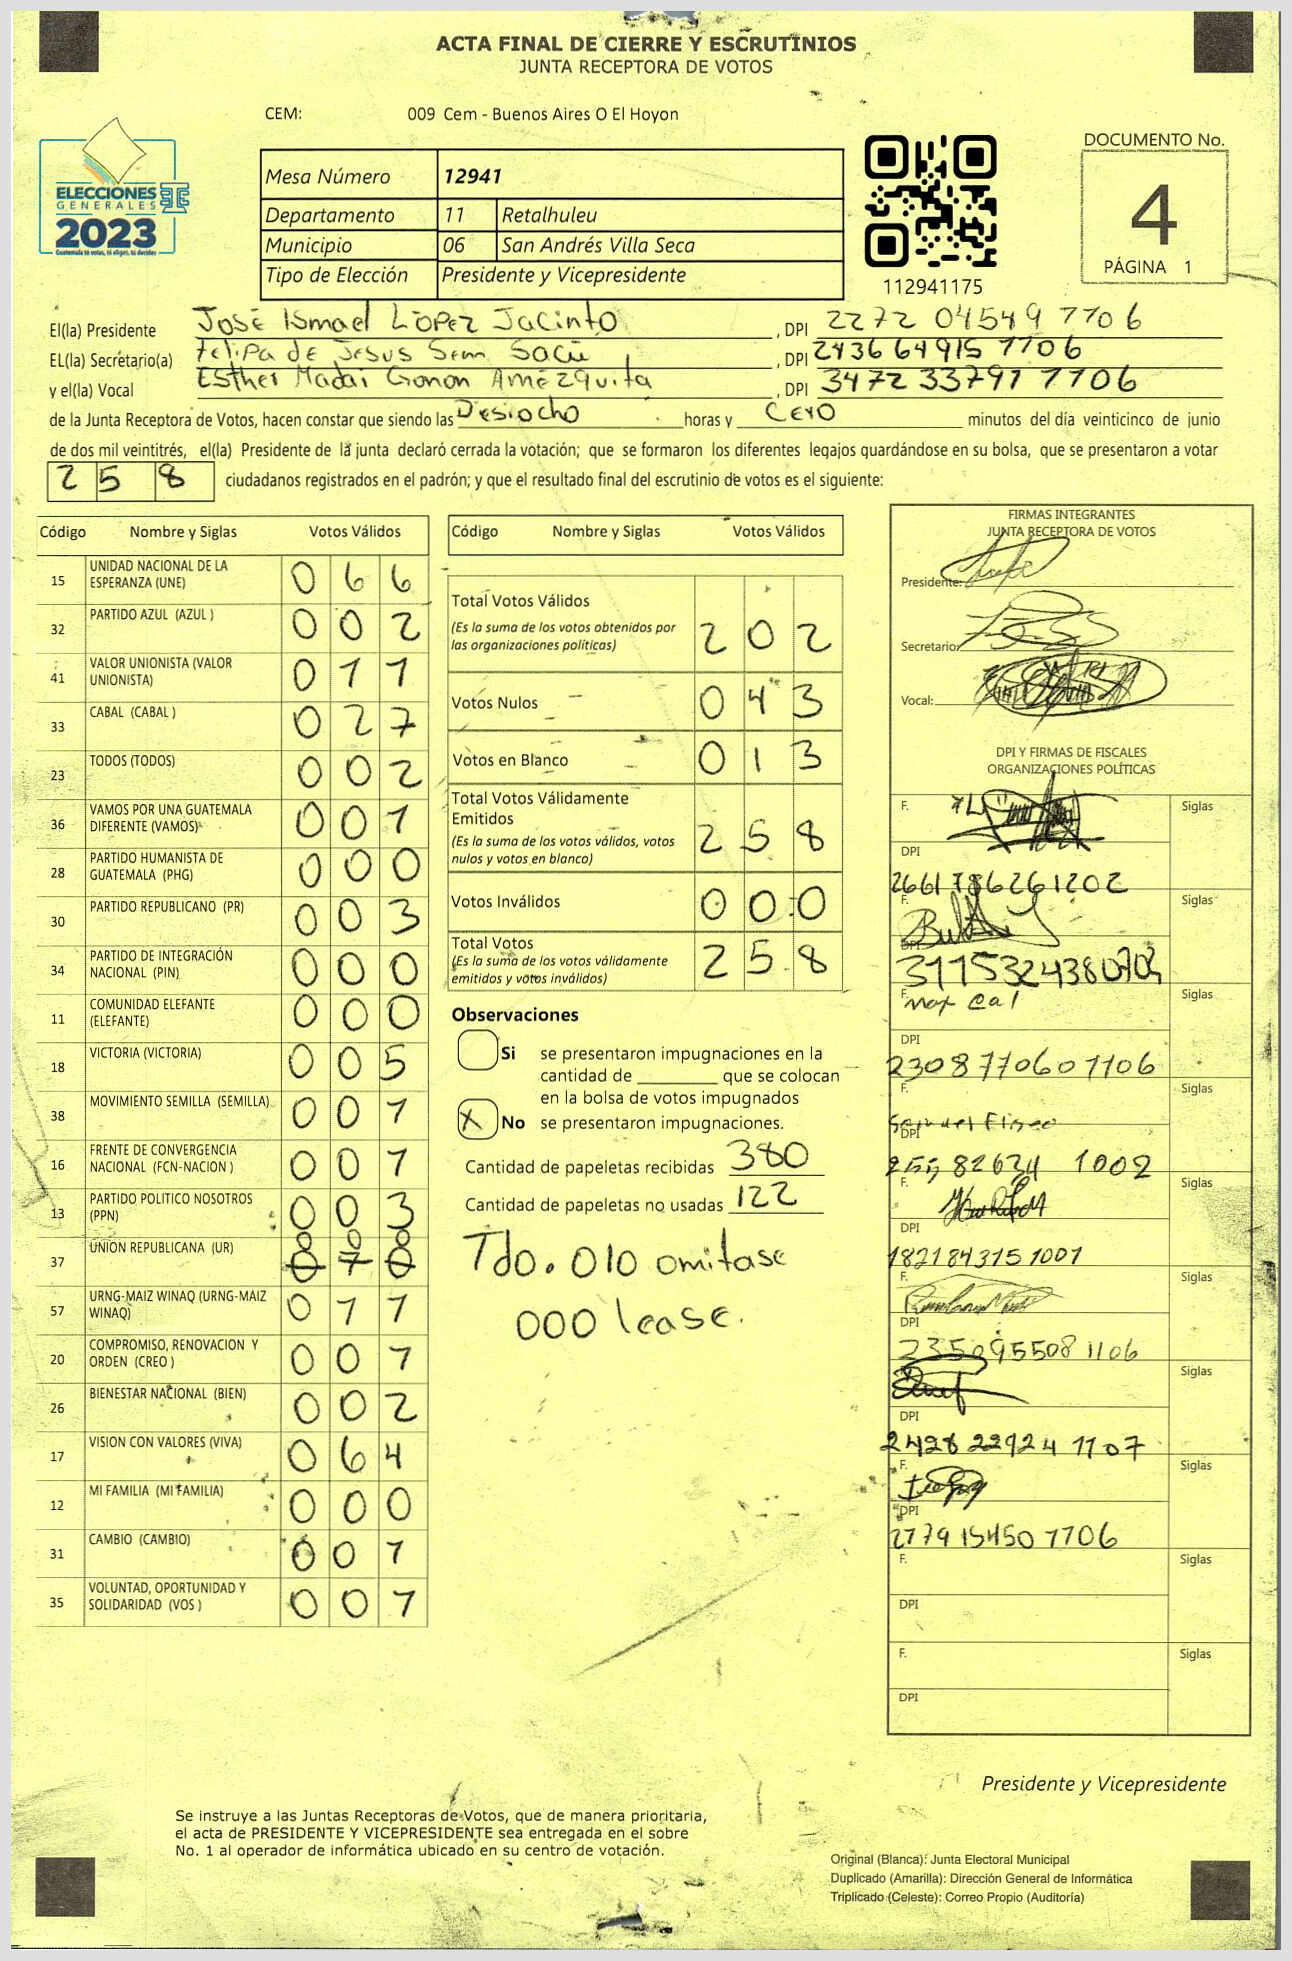 ACTA FINAL DE CIERRE Y ESCRUTINIOS
JUNTA RECEPTORA DE VOTOS
CEM: 009 Cem - Buenos Aires O El Hoyon
ELECCIONES
GENERALES
2023
Guatemala te votas, tú eliges, tú decides
Mesa Número 12941
Departamento 11 Retalhuleu
Municipio 06 San Andrés Villa Seca
Tipo de Elección Presidente y Vicepresidente
112941175
DOCUMENTO No.
4
PÁGINA 1
El(la) Presidente José Ismael López Jacinto , DPI 2272 04549 7706
EL(la) Secretario(a) Felipa de Jesus Sem Sacü , DPI 2436 64915 1106
y el(la) Vocal Esther Madai Gonon Amézquita , DPI 3472 33791 1106
de la Junta Receptora de Votos, hacen constar que siendo las Desiocho horas y Cero minutos del día veinticinco de junio
de dos mil veintitrés, el(la) Presidente de la junta declaró cerrada la votación; que se formaron los diferentes legajos quardándose en su bolsa, que se presentaron a votar
258 ciudadanos registrados en el padrón; y que el resultado final del escrutinio de votos es el siguiente:
Código Nombre y Siglas Votos Válidos
15 UNIDAD NACIONAL DE LA ESPERANZA (UNE) 066
32 PARTIDO AZUL (AZUL ) 002
41 VALOR UNIONISTA (VALOR UNIONISTA) 011
33 CABAL (CABAL ) 027
23 TODOS (TODOS) 002
36 VAMOS POR UNA GUATEMALA DIFERENTE (VAMOS) 001
28 PARTIDO HUMANISTA DE GUATEMALA (PHG) 000
30 PARTIDO REPUBLICANO (PR) 003
34 PARTIDO DE INTEGRACIÓN NACIONAL (PIN) 000
11 COMUNIDAD ELEFANTE (ELEFANTE) 000
18 VICTORIA (VICTORIA) 005
38 MOVIMIENTO SEMILLA (SEMILLA) 001
16 FRENTE DE CONVERGENCIA NACIONAL (FCN-NACION ) 001
13 PARTIDO POLITICO NOSOTROS (PPN) 003
37 UNION REPUBLICANA (UR) 000 010
57 URNG-MAIZ WINAQ (URNG-MAIZ WINAQ) 011
20 COMPROMISO, RENOVACION Y ORDEN (CREO ) 001
26 BIENESTAR NACIONAL (BIEN) 002
17 VISION CON VALORES (VIVA) 064
12 MI FAMILIA (MI FAMILIA) 000
31 CAMBIO (CAMBIO) 001
35 VOLUNTAD, OPORTUNIDAD Y SOLIDARIDAD (VOS ) 001
Código Nombre y Siglas Votos Válidos
Total Votos Válidos 202
(Es la suma de los votos obtenidos por
las organizaciones políticas)
Votos Nulos 043
Votos en Blanco 013
Total Votos Válidamente
Emitidos 258
(Es la suma de los votos válidos, votos
nulos y votos en blanco)
Votos Inválidos 000
Total Votos 258
(Es la suma de los votos válidamente
emitidos y votos inválidos)
Observaciones
Si se presentaron impugnaciones en la
cantidad de ________ que se colocan
en la bolsa de votos impugnados
X No se presentaron impugnaciones.
Cantidad de papeletas recibidas 380
Cantidad de papeletas no usadas 122
Tdo. 010 omitase
000 lease.
FIRMAS INTEGRANTES
JUNTA RECEPTORA DE VOTOS
Presidente:
Secretario:
Vocal:
DPI Y FIRMAS DE FISCALES
ORGANIZACIONES POLÍTICAS
F. Siglas
DPI
2661786261202
F. Siglas
DPI
F. Siglas
DPI
2308770601106
F. Samuel Eliseo Siglas
DPI
F. Siglas
DPI
1821843151001
F. Siglas
DPI
2350955081106
F. Siglas
DPI
2428 22924 1107
F. Siglas
DPI
2779 15450 1106
F. Siglas
DPI
F. Siglas
DPI
Presidente y Vicepresidente
Se instruye a las Juntas Receptoras de Votos, que de manera prioritaria,
el acta de PRESIDENTE Y VICEPRESIDENTE sea entregada en el sobre
No. 1 al operador de informática ubicado en su centro de votación.
Original (Blanca): Junta Electoral Municipal
Duplicado (Amarilla): Dirección General de Informática
Triplicado (Celeste): Correo Propio (Auditoría)